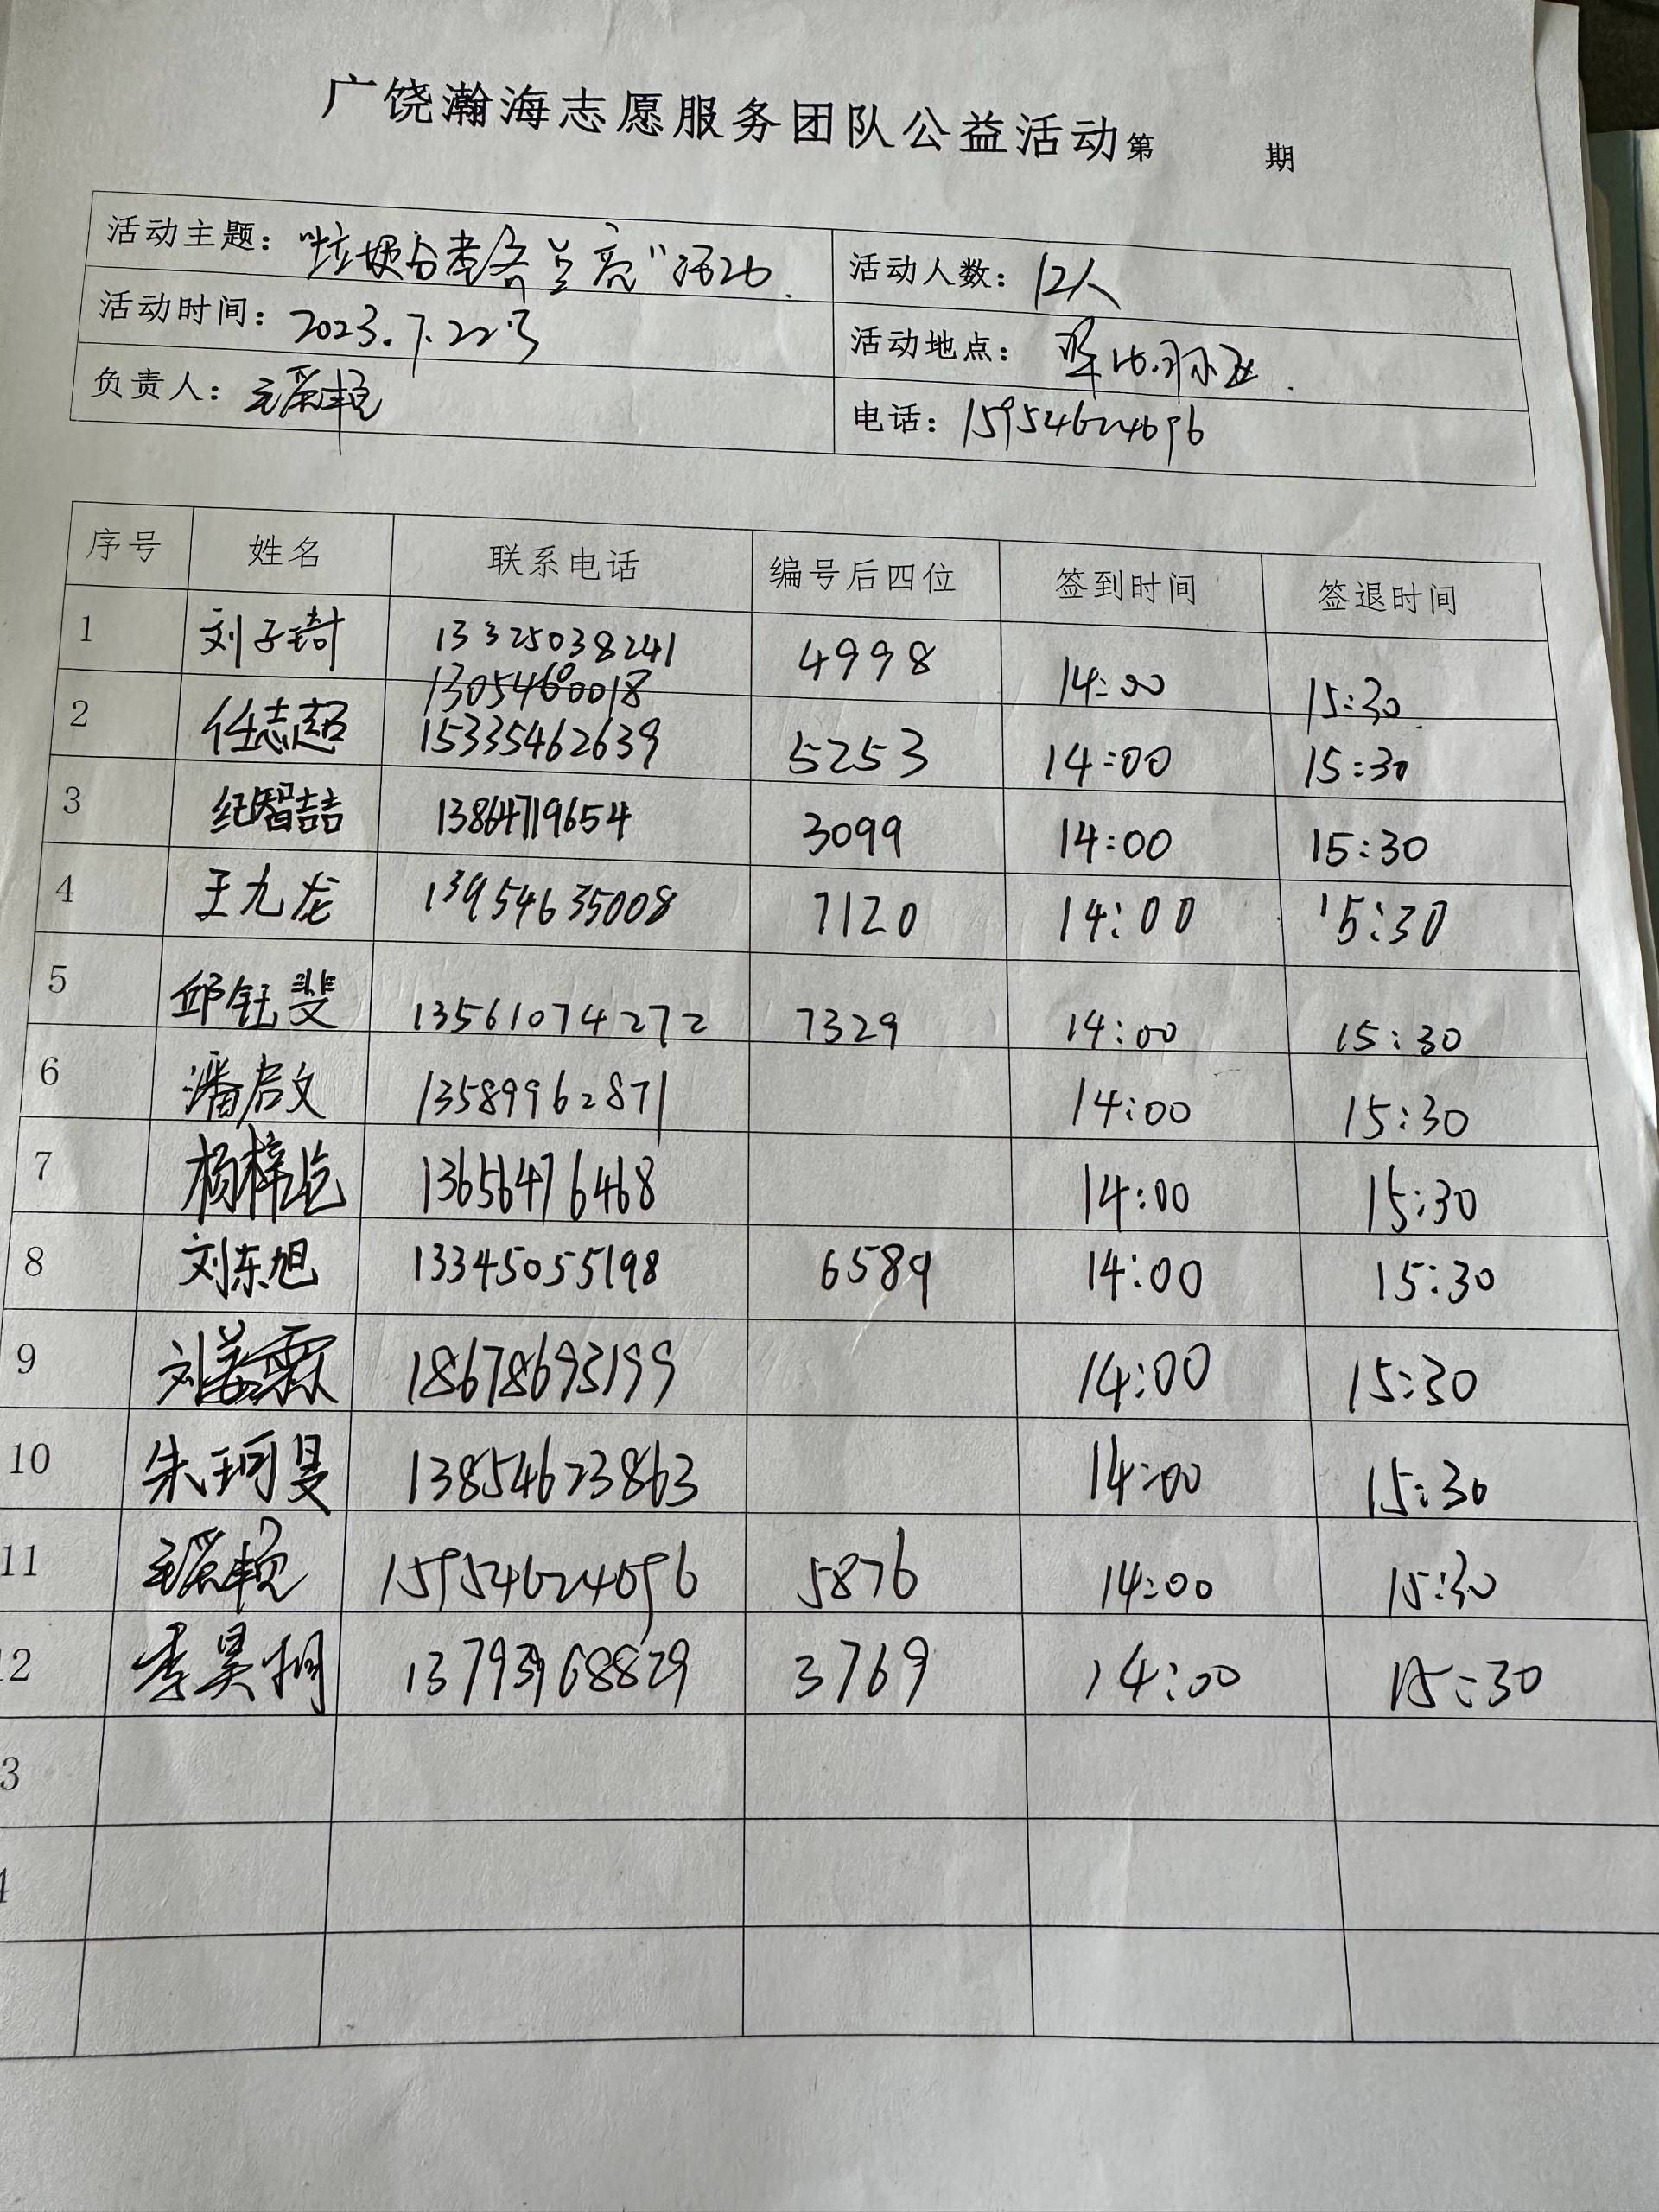 广饶瀚海志愿服务团队公益活动第 期
活动主题：“垃圾分类 ”活动. 活动人数：12人
活动时间：2023.7.22号 活动地点：
负责人： 电话：15954624696
序号 姓名 联系电话 编号后四位 签到时间 签退时间
1 刘子琦 13325038241 4998 14:00 15:30
13054600018
2 任志超 15335462639 5253 14:00 15:30
3 纪智喆 13864719654 3099 14:00 15:30
4 王九龙 13954635008 7120 14:00 15:30
5 邱钰斐 13561074272 7329 14:00 15:30
6 潘启文 13589962871 14:00 15:30
7 杨梓屹 13656476468 14:00 15:30
8 刘东旭 13345055198 6589 14:00 15:30
9 刘 霖 18678693199 14:00 15:30
10 朱珂旻 13854623863 14:00 15:30
11 15954624696 5876 14:00 15:30
12 李昊桐 3769 14:00 15:30
3
4